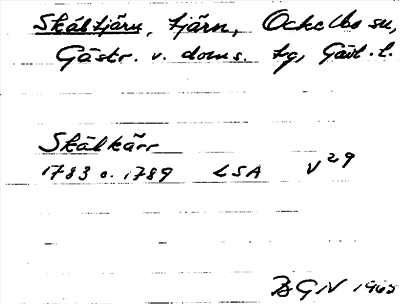 Skåltjärn, tjärn, Ockelbo sn,
Gästr. v. doms. tg, Gävl. l.
Skålkärr
1783 o. 1789 LSA V29
BGN 1965